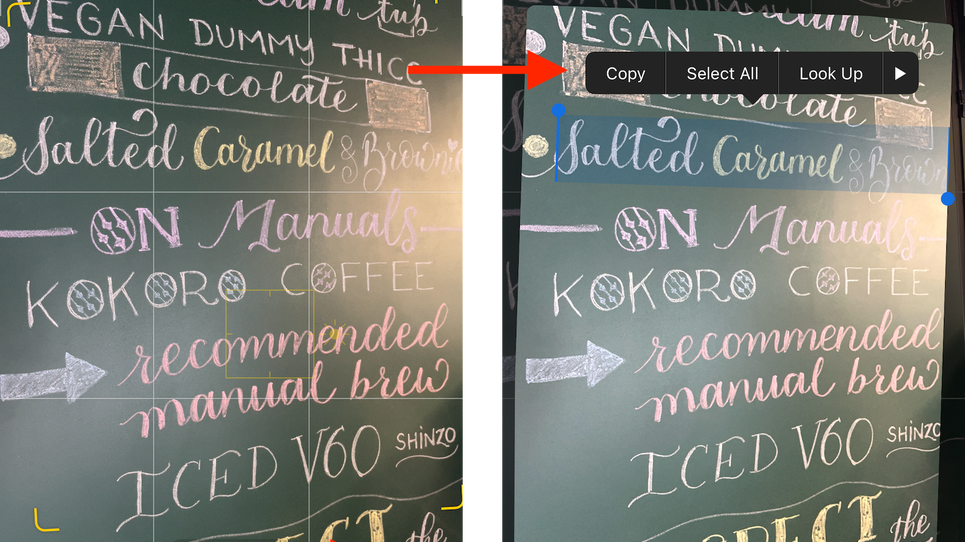 tub
VEGAN DUMMY THICC
chocolate
Salted Caramel & Brownie
ON Manuals
KOKORO COFFEE
recommended
manual brew
ICED V60 SHINZO
the
tub
VEGAN
Copy Select All Look Up
Salted Caramel &
ON Manuals
KOKORO COFFEE
recommended
manual brew
ICED V60 SHINZO
the